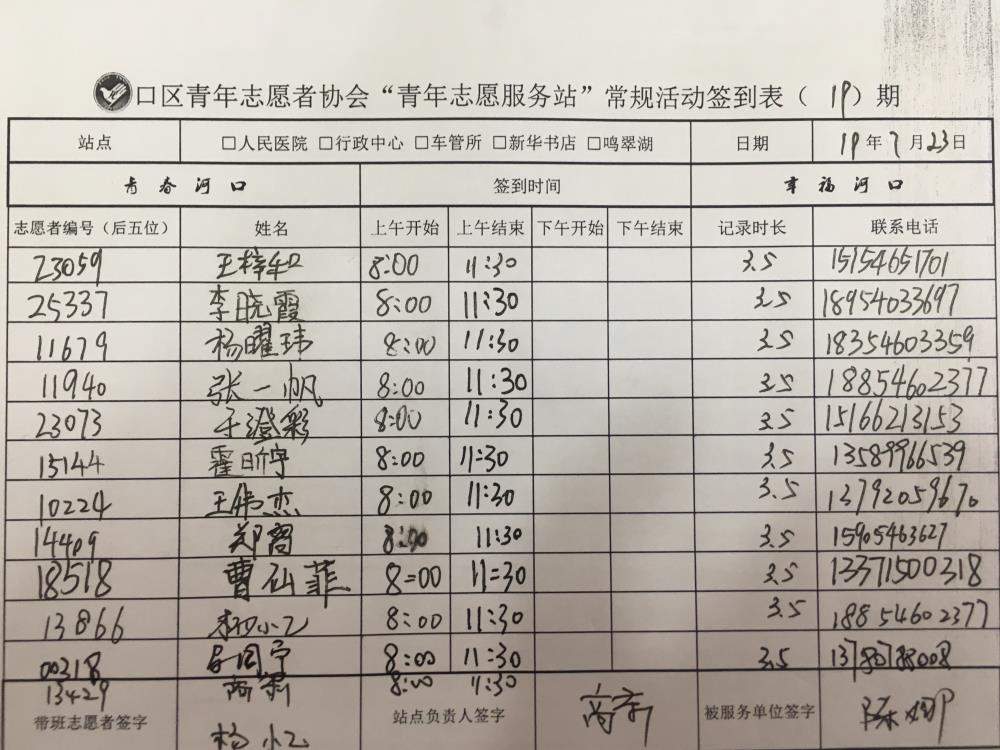 口区青年志愿者协会“青年志愿服务站”常规活动签到表（19）期
站点 □人民医院 □行政中心 □车管所 □新华书店 □鸣翠湖 日期 19年7月23日
青春河口 签到时间 幸福河口
志愿者编号（后五位） 姓名 上午开始 上午结束 下午开始 下午结束 记录时长 联系电话
23059 王梓和 8:00 11:30 3.5 15154651701
25337 李晓霞 8:00 11:30 3.5 18954033697
11679 杨曜玮 8:00 11:30 3.5 18354603359
11940 张一帆 8:00 11:30 3.5 18854602377
23073 于澄彩 8:00 11:30 3.5 15166213153
15144 霍昕宇 8:00 11:30 3.5 13589966539
10224 王伟杰 8:00 11:30 3.5 13792059670
14409 郑商 8:00 11:30 3.5 15905463627
18518 曹仙菲 8:00 11:30 3.5 13371500318
13866 8:00 11:30 3.5 18854602377
00318 8:00 11:30 3.5
13429 8:00 11:30
带班志愿者签字 杨小乙 站点负责人签字 被服务单位签字 陈娜